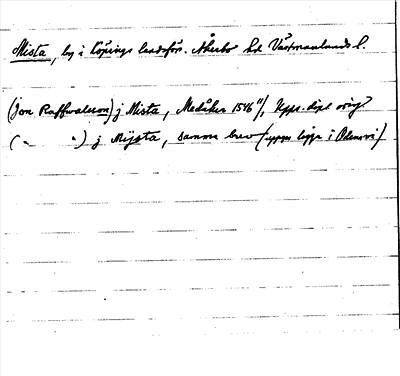 Mista, by i Köpings landsförs. Åkerbo hd Västmanlands l.
(Jon Raffwalsson) j Mista, Medåker 1546 11/1 Uppl. dipl orig
( " " ) j Mijsta, samma brev (uppges ligga i Ödensvi)